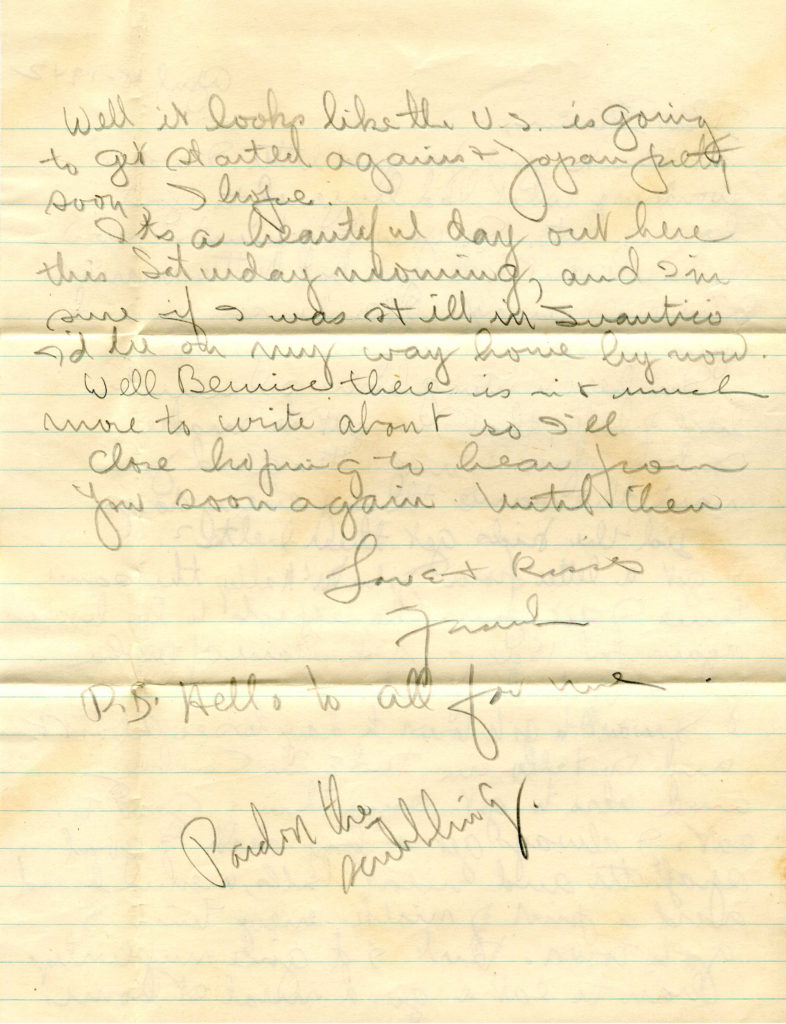 Well it looks like the U.S. is going
to get started against Japan pretty
soon, I hope.
Its a beautiful day out here
this Saturday morning, and I'm
sure if I was still in Quantico
I'd be on my way home by now.
Well Bernice there isn't much
more to write about so I'll
close hoping to hear from
you soon again. Until then
Love & Kisses
Frank
P.S. Hello to all for me.
Pardon the
scribbling.